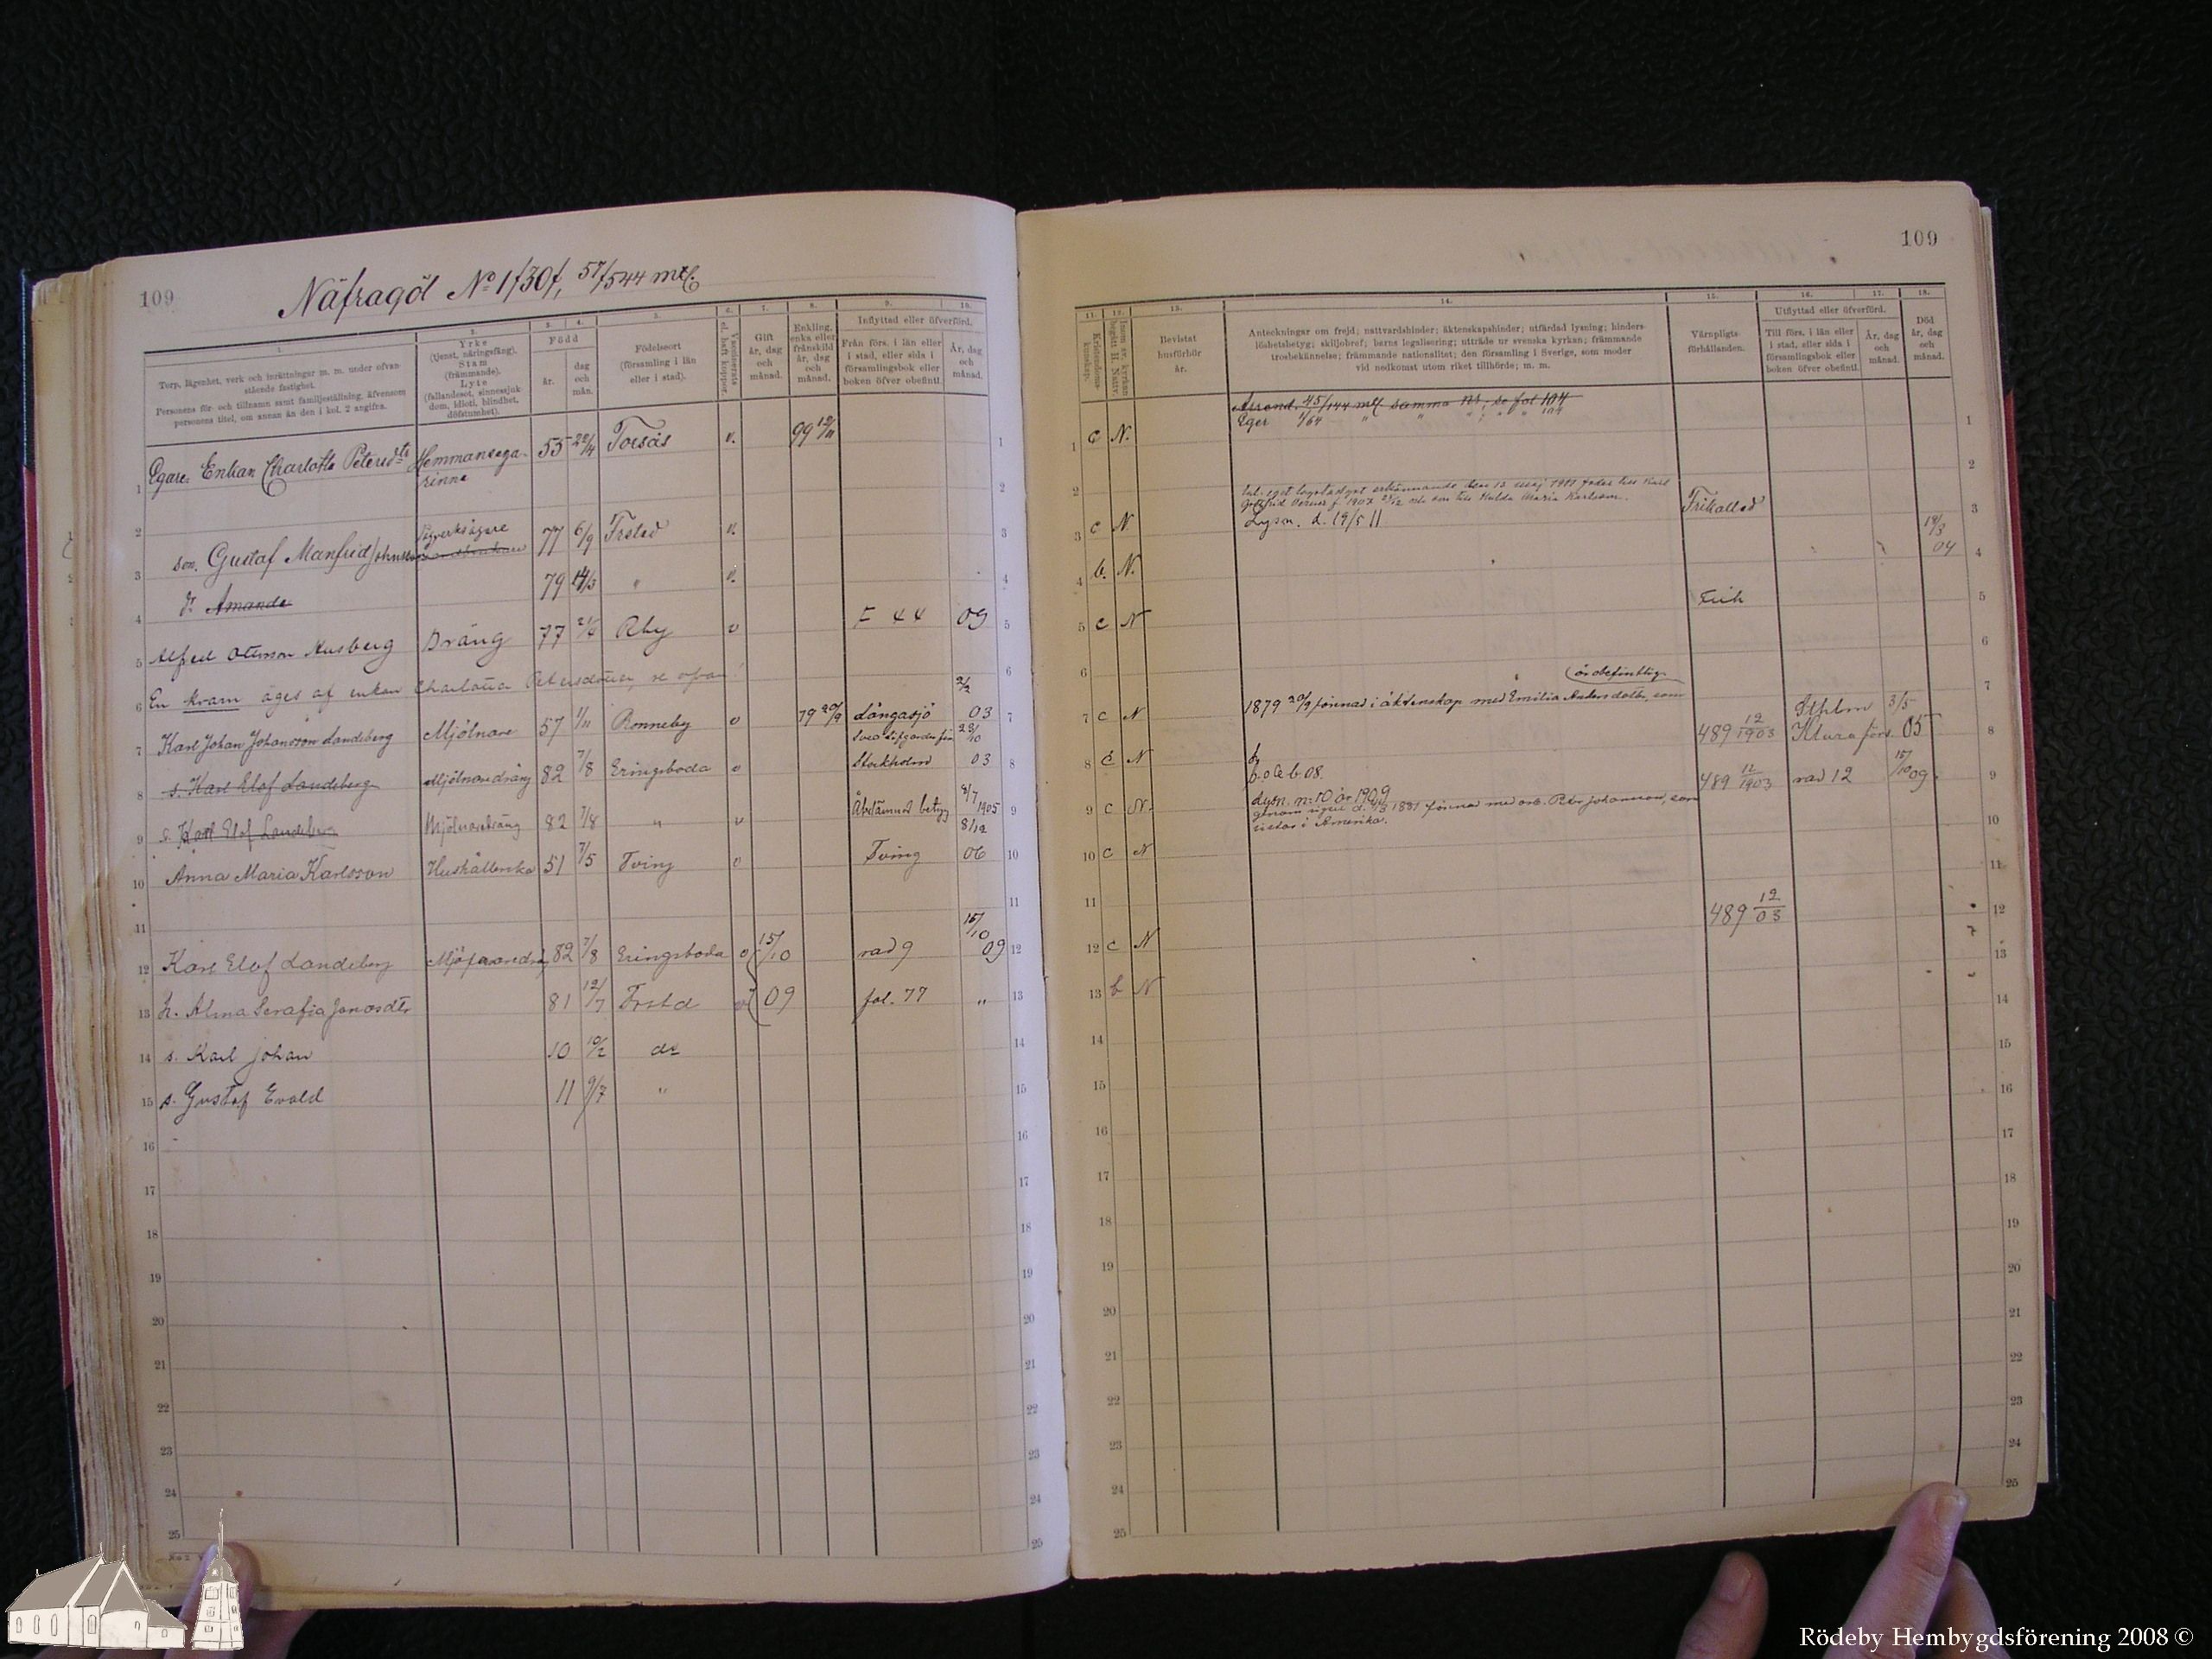 109
Näfragöl No 1f30f, 57/544 mtl.
1. 2. 3. 4. 5. 6. 7. 8. 9. 10.
Torp, lägenhet, verk och inrättningar m. m. under ofvan-
stående fastighet.
Personens för- och tillnamn samt familjeställning, äfvensom
personens titel, om annan än den i kol. 2 angifra.
Yrke
(tjenst, näringsfång).
Stam
(främmande).
Lyte
(fallandesot, sinnessjuk-
dom, idioti, blindhet,
döfstumhet).
Född
år.
dag
och
mån.
Födelseort
(församling i län
eller i stad).
Vaccinerats
el. haft koppor.
Gift
år, dag
och
månad.
Enkling,
enka eller
frånskild
år, dag
och
månad.
Inflyttad eller öfverförd.
Från förs. i län eller
i stad, eller sida i
församlingsbok eller
boken öfver obefintl.
År, dag
och
månad.
1 Egare: Enkan Charlotta Petersdtr Hemmansega-
rinna 55 22/4 Torsås v. 99 12/11 1
2 2
3 son. Gustaf Manfrid Johnsson Sågverksägare 77 6/9 Frsted v. 3
4 dr Amanda 79 14/3 " v. 4
5 Alfred Ottosson Husberg Dräng 77 21/4 Rby v F 44 09 5
6 En kvarn äges af enkan Charlotta Petersdotter, se ofvan! 6
7 Karl Johan Johansson Landeberg Mjölnare 57 1/11 Ronneby v 79 20/9 Långasjö 2/2 03 7
8 s. Karl Elof Landeberg Mjölnaredräng 82 7/8 Eringsboda v Svea Lifgardes förs
Stockholm 23/10 03 8
9 s. Karl Elof Landeberg Mjölnaredräng 82 7/8 " v Åberämnd betyg 8/7 1905 9
10 Anna Maria Karlsson Hushållerska 51 7/5 Tving v Tving 8/12 06 10
11 11
12 Karl Elof Landeberg Mjölnaredräng 82 7/8 Eringsboda v 15/10 rad 9 15/10 09 12
13 h. Alma Serafia Jonasdtr 81 12/7 Frstd v 09 fol. 77 " 13
14 s. Karl Johan 10 10/2 do 14
15 s. Gustaf Evald 11 9/7 " 15
16 16
17 17
18 18
19 19
20 20
21 21
22 22
23 23
24 24
25 25
109
11. 12. 13. 14. 15. 16. 17. 18.
Kristendoms-
kunskap.
Inom sv. kyrkan
begått H. Nattv.
Bevistat
husförhör
år.
Anteckningar om frejd; nattvardshinder; äktenskapshinder; utfärdad lysning; hinders-
löshetsbetyg; skiljobref; barns legalisering; utträde ur svenska kyrkan; främmande
trosbekännelse; främmande nationalitet; den församling i Sverige, som moder
vid nedkomst utom riket tillhörde; m. m.
Värnpligts-
förhållanden.
Utflyttad eller öfverförd.
Till förs. i län eller
i stad, eller sida i
församlingsbok eller
boken öfver obefintl.
År, dag
och
månad.
Död
år, dag
och
månad.
1 c N. Arrend. 45/144 mtl samma nr; se fol 104
Eger 1/64 " " " " 104 1
2 2
Enl. eget erkännande den 12 maj 1911 fader till Karl
Gottfrid f. 1907 och son till Hulda Maria Karlsson.
3 c N Lysn. d. 19/5 11 Frikallad 3
4 b. N. 19/3 04 4
5 c N Frik 5
6 6
7 c N 1879 20/9 lämnad i äktenskap med Emilia Andersdotter, som
är obefintlig 7
8 c N 489 12/1903 Sthlm
Klara förs. 3/5 05 8
9 c N. p. o. c b. 08.
Lysn. n:10 år 1909 489 12/1903 rad 12 15/10 09. 9
10 c N 1881 lämnad med arb. Per Johansson, som
vistas i Amerika. 10
11 11
12 c N 489 12/03 12
13 b N 13
14 14
15 15
16 16
17 17
18 18
19 19
20 20
21 21
22 22
23 23
24 24
25 25
Rödeby Hembygdsförening 2008 ©